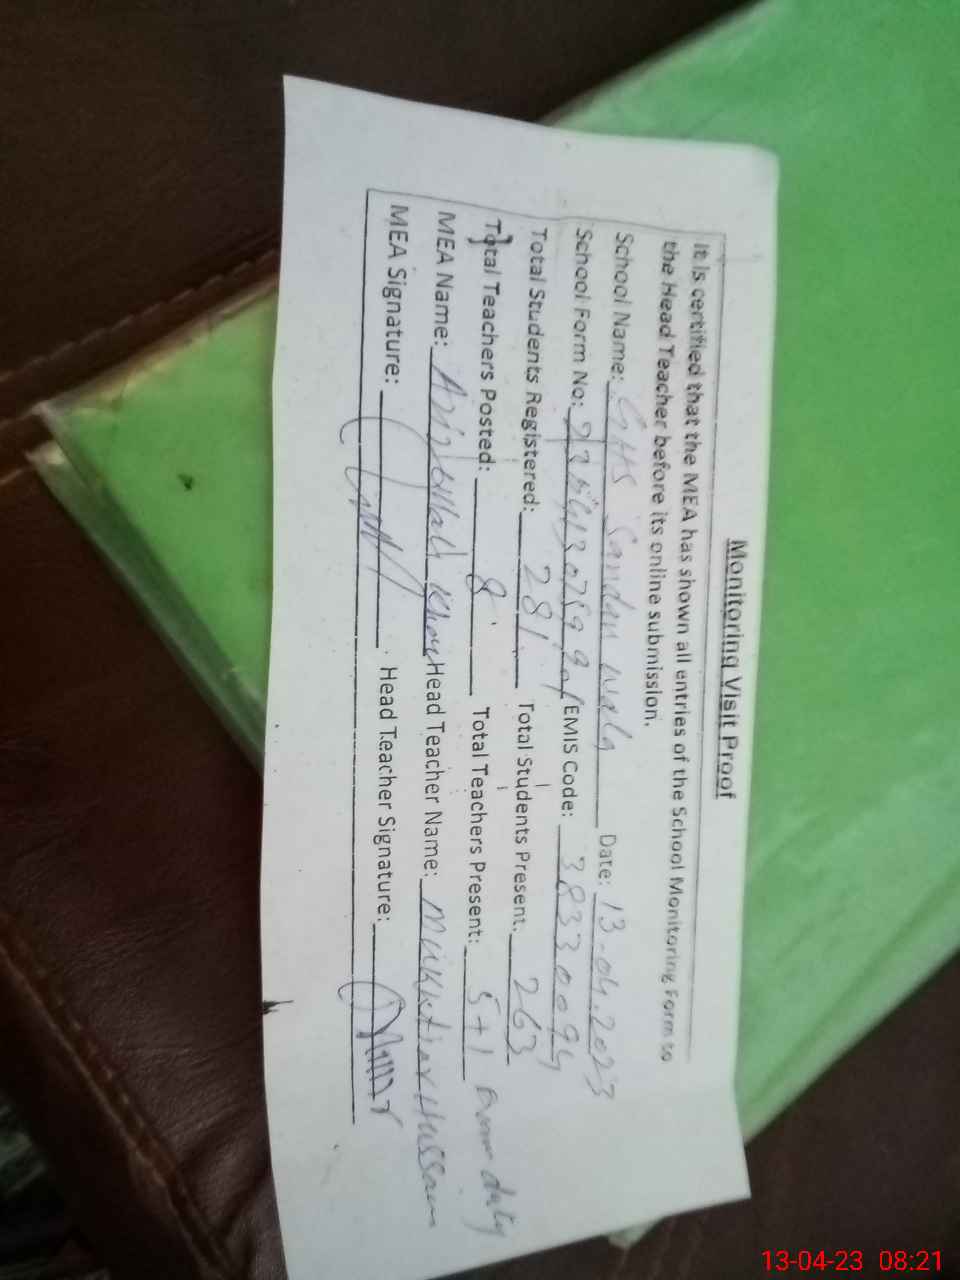 Monitoring Visit Proof
It is certified that the MEA has shown all entries of the School Monitoring Form to
the Head Teacher before its online submission.
School Name: GHS Sandan wala Date: 13-04-2023
School Form No: EMIS Code: 38330094
Total Students Registered: 281 Total Students Present: 263
Total Teachers Posted: 8 Total Teachers Present: 5+1 Exam duty
MEA Name: Aziz ullah Khan Head Teacher Name: Mukhtiar Hussain
MEA Signature: Head Teacher Signature:
13-04-23 08:21